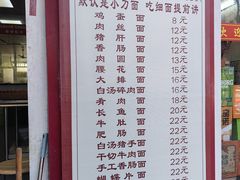 默认是小刀面 吃细面提前讲
鸡蛋面 8元
肉丝面 12元
猪肝面 12元
香肠面 12元
肉圆面 13元
腰花面 15元
大排面 16元
白汤碎肉面 16元
肴肉面 18元
长鱼面 22元
牛肚面 22元
肥肠面 22元
白汤猪手面 22元
干切牛肉面 22元
手工香肠面 22元
蝴蝶片面 22元
欢迎